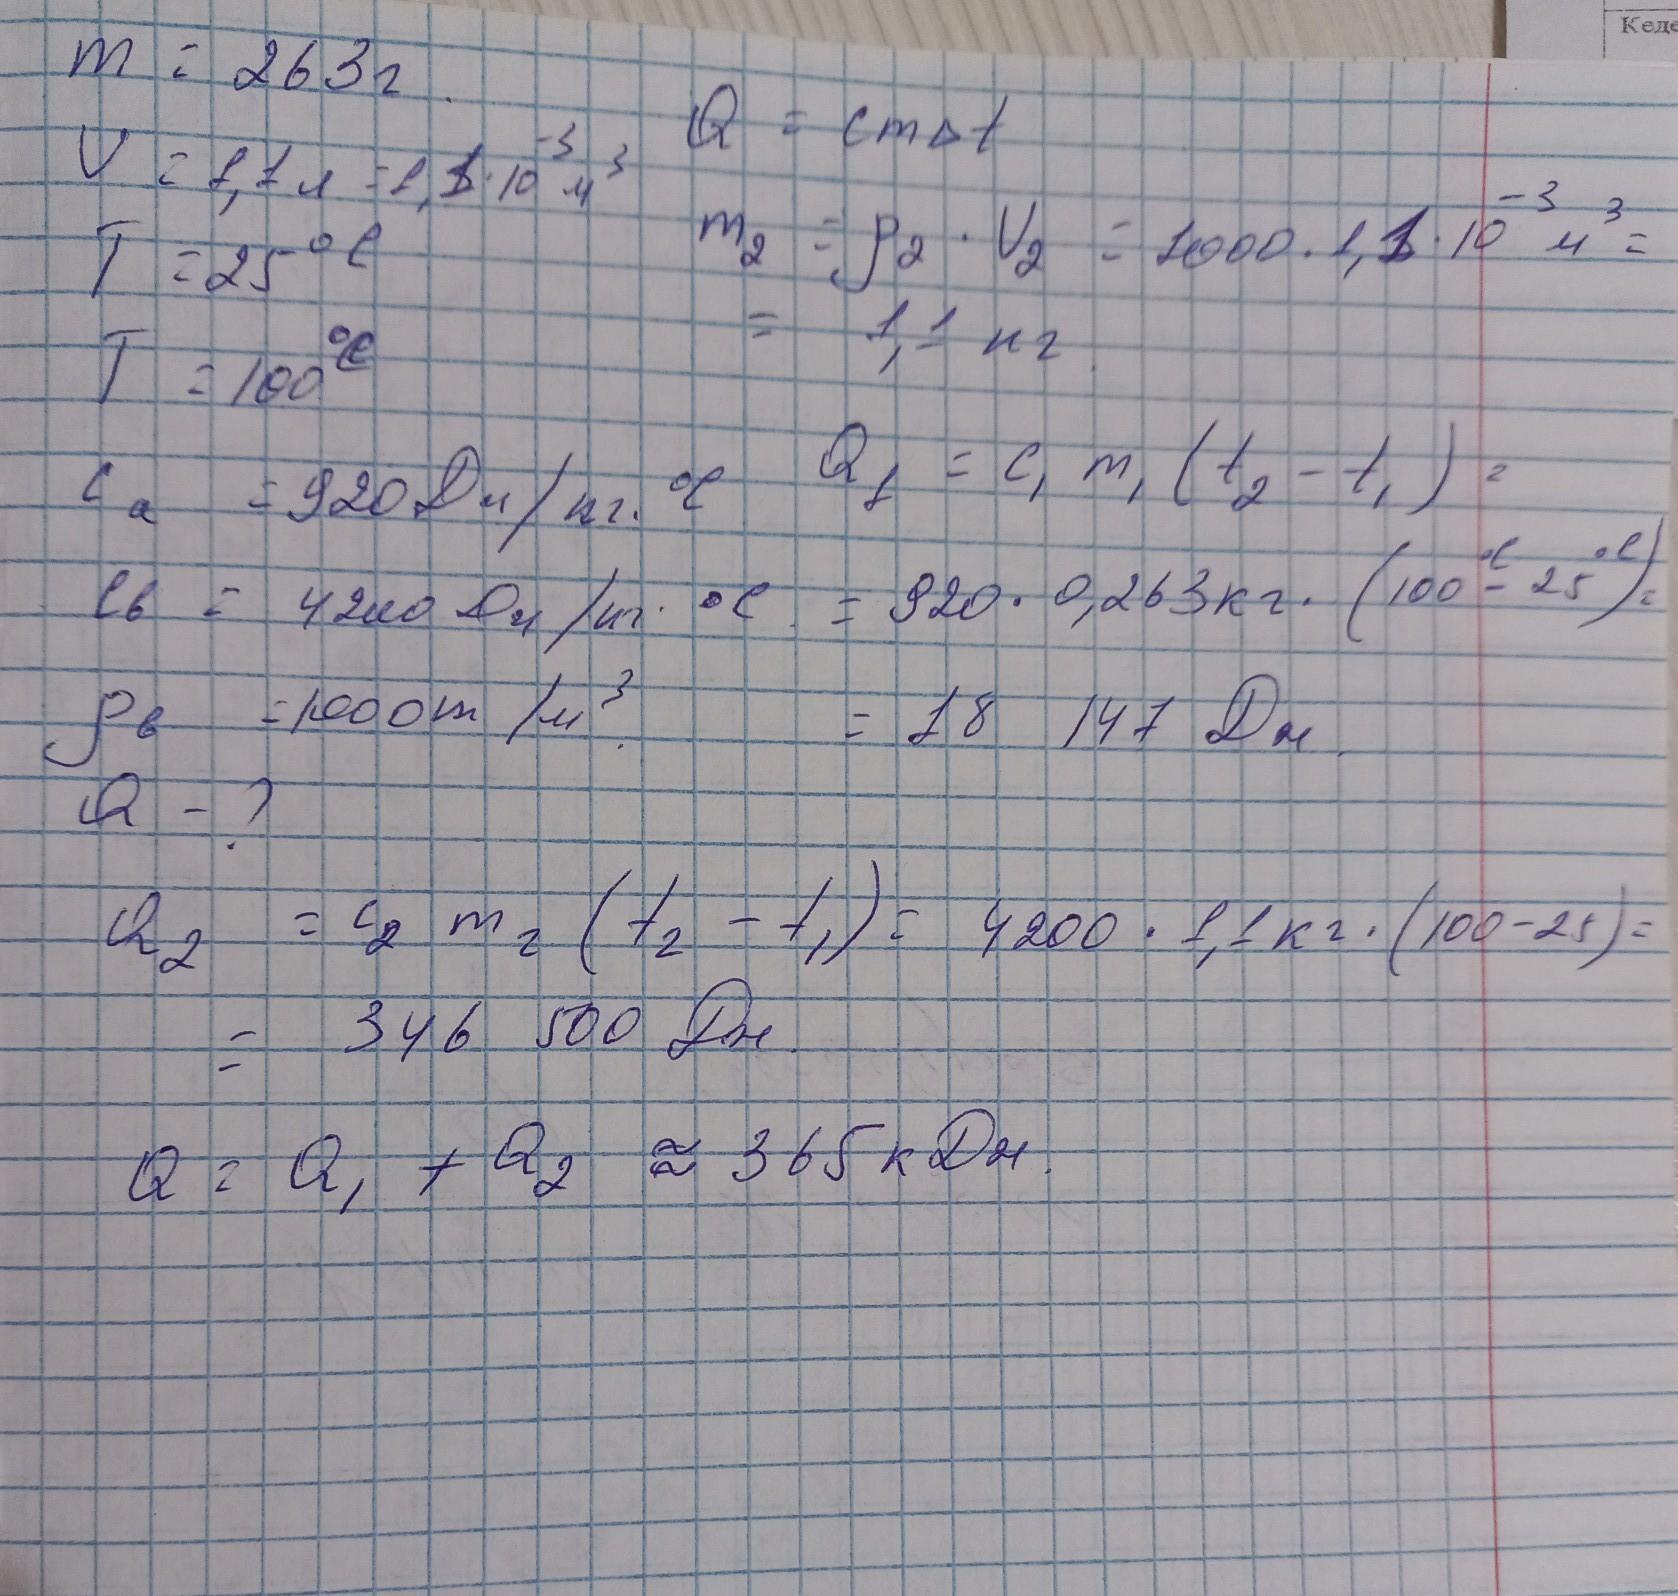 Кеде
m = 263г.
V = 1,1 л = 1,1·10⁻³ м³
T = 25°C
T = 100°C
cа = 920 Дж/кг·°C
cв = 4200 Дж/кг·°C
ρв = 1000 m/м³.
Q - ?
Q = cmΔt
m₂ = ρ₂ · V₂ = 1000 · 1,1 · 10⁻³ м³ =
= 1,1 кг.
Q₁ = c₁ m₁ (t₂ - t₁) =
= 920 · 0,263кг · (100°C - 25°C) =
= 18 147 Дж.
Q₂ = c₂ m₂ (t₂ - t₁) = 4200 · 1,1кг · (100-25) =
= 346 500 Дж.
Q = Q₁ + Q₂ ≈ 365 кДж.